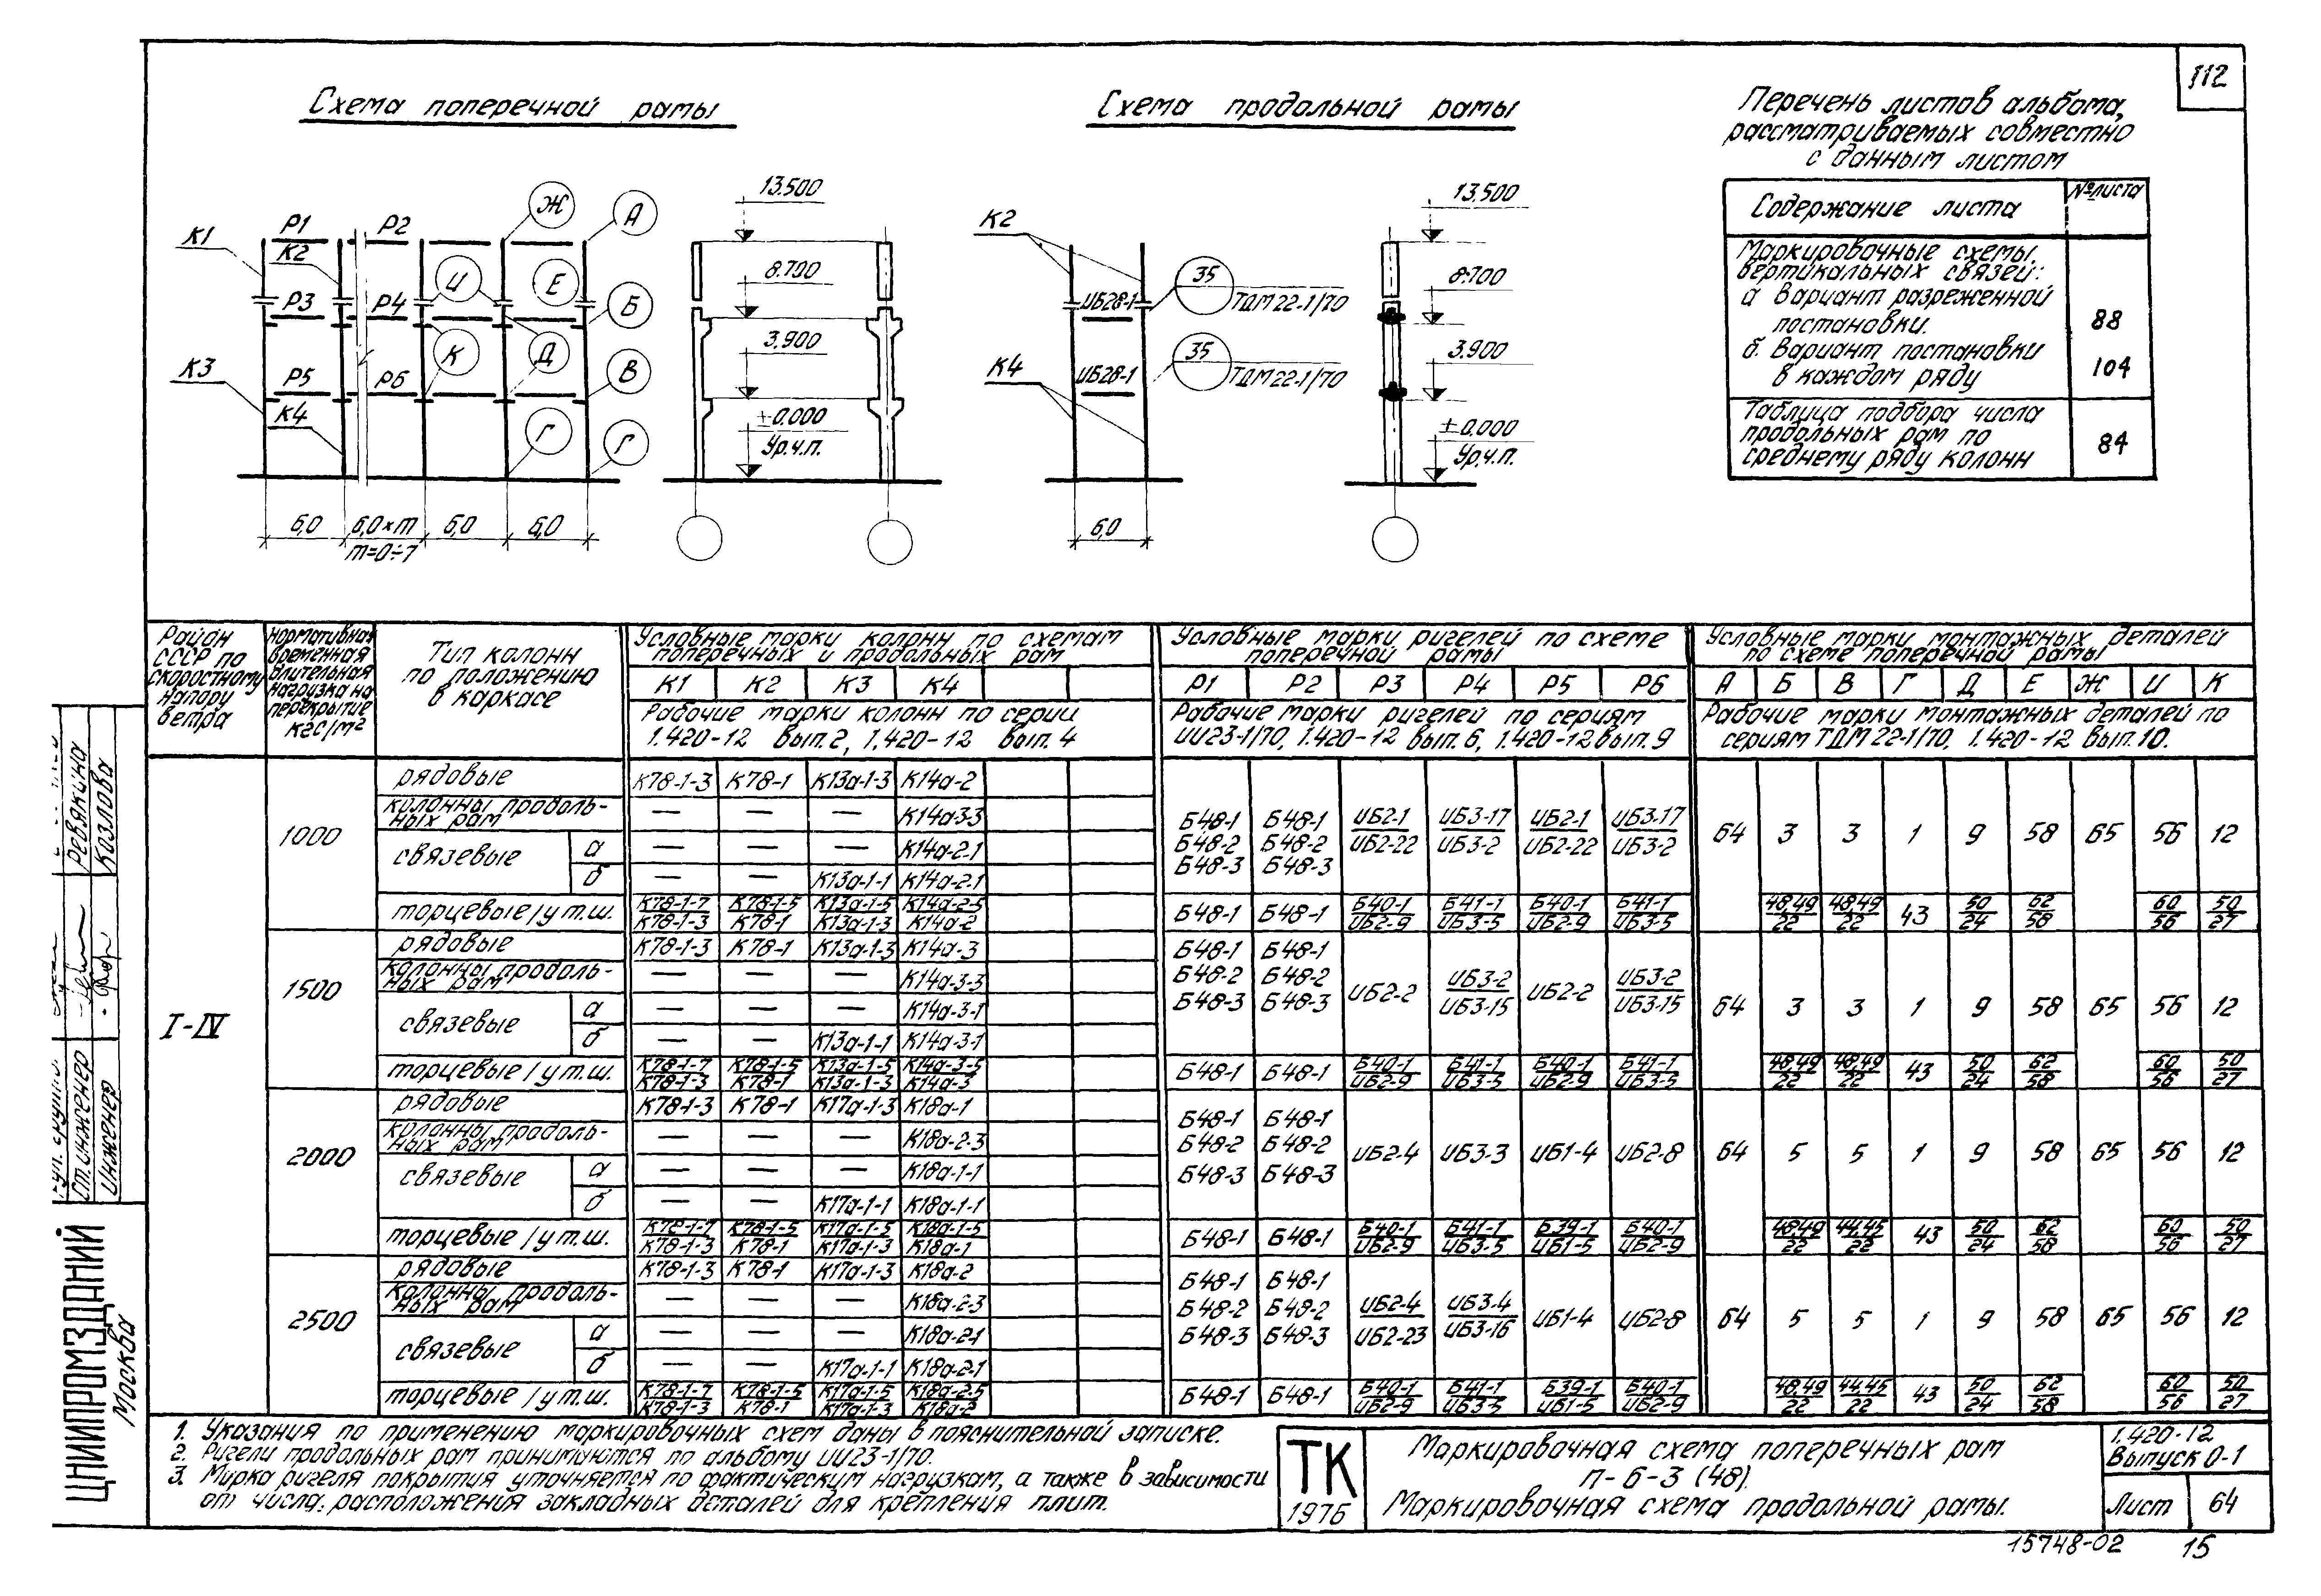 112
Схема поперечной рамы
Схема продольной рамы
Перечень листов альбома,
рассматриваемых совместно
с данным листом
Содержание листа
№ листа
Маркировочные схемы
вертикальных связей:
а вариант разреженной
постановки.
88
б. Вариант постановки
в каждом ряду
104
Таблица подбора числа
продольных рам по
среднему ряду колонн
84
К1 Р1 К2 Р2 Ж А
Р3 Р4 И Е Б
К3 Р5 Р6 К Д В
К4 Г Г
6,0 6,0×m 6,0 6,0
m=0÷7
13.500
8.700
3.900
±0.000
Ур.ч.п.
К2
ИБ28-1 35 ТДМ22-1/70
К4
ИБ28-1 35 ТДМ22-1/70
6,0
13.500
8.700
3.900
±0.000
Ур.ч.п.
Район
СССР по
скоростному
напору
ветра
Нормативная
временная
длительная
нагрузка на
перекрытие
кгс/м²
Тип колонн
по положению
в каркасе
Условные марки колонн по схемам
поперечных и продольных рам
К1 К2 К3 К4
Рабочие марки колонн по серии
1.420-12 вып. 2, 1.420-12 вып. 4
Условные марки ригелей по схеме
поперечной рамы
Р1 Р2 Р3 Р4 Р5 Р6
Рабочие марки ригелей по сериям
ИИ23-1/70, 1.420-12 вып. 6, 1.420-12 вып. 9
Условные марки монтажных деталей
по схеме поперечной рамы
А Б В Г Д Е Ж И К
Рабочие марки монтажных деталей по
сериям ТДМ 22-1/70, 1.420-12 вып. 10.
I-IV
1000
рядовые К78-1-3 К78-1 К13а-1-3 К14а-2
колонны продоль-
ных рам — — — К14а-3-3
связевые а — — — К14а-2-1
б — — К13а-1-1 К14а-2-1
Б48-1 Б48-1 ИБ2-1 ИБ3-17 ИБ2-1 ИБ3-17
Б48-2 Б48-2 ИБ2-22 ИБ3-2 ИБ2-22 ИБ3-2
Б48-3 Б48-3
64 3 3 1 9 58 65 56 12
торцевые/у т.ш. К78-1-7 К78-1-5 К13а-1-5 К14а-2-5
К78-1-3 К78-1 К13а-1-3 К14а-2
Б48-1 Б48-1 Б40-1 Б41-1 Б40-1 Б41-1
ИБ2-9 ИБ3-5 ИБ2-9 ИБ3-5
48,49 48,49 43 50 62 60 50
22 22 24 58 56 27
1500
рядовые К78-1-3 К78-1 К13а-1-3 К14а-3
колонны продоль-
ных рам — — — К14а-3-3
связевые а — — — К14а-3-1
б — — К13а-1-1 К14а-3-1
Б48-1 Б48-1
Б48-2 Б48-2 ИБ2-2 ИБ3-2 ИБ2-2 ИБ3-2
Б48-3 Б48-3 ИБ3-15 ИБ3-15
64 3 3 1 9 58 65 56 12
торцевые/у т.ш. К78-1-7 К78-1-5 К13а-1-5 К14а-3-5
К78-1-3 К78-1 К13а-1-3 К14а-3
Б48-1 Б48-1 Б40-1 Б41-1 Б40-1 Б41-1
ИБ2-9 ИБ3-5 ИБ2-9 ИБ3-5
48,49 48,49 43 50 62 60 50
22 22 24 58 56 27
2000
рядовые К78-1-3 К78-1 К17а-1-3 К18а-1
колонны продоль-
ных рам — — — К18а-2-3
связевые а — — — К18а-1-1
б — — К17а-1-1 К18а-1-1
Б48-1 Б48-1
Б48-2 Б48-2 ИБ2-4 ИБ3-3 ИБ1-4 ИБ2-8
Б48-3 Б48-3
64 5 5 1 9 58 65 56 12
торцевые/у т.ш. К78-1-7 К78-1-5 К17а-1-5 К18а-1-5
К78-1-3 К78-1 К17а-1-3 К18а-1
Б48-1 Б48-1 Б40-1 Б41-1 Б39-1 Б40-1
ИБ2-9 ИБ3-5 ИБ1-5 ИБ2-9
48,49 44,45 43 50 62 60 50
22 22 24 58 56 27
2500
рядовые К78-1-3 К78-1 К17а-1-3 К18а-2
колонны продоль-
ных рам — — — К18а-2-3
связевые а — — — К18а-2-1
б — — К17а-1-1 К18а-2-1
Б48-1 Б48-1
Б48-2 Б48-2 ИБ2-4 ИБ3-4 ИБ1-4 ИБ2-8
Б48-3 Б48-3 ИБ2-23 ИБ3-16
64 5 5 1 9 58 65 56 12
торцевые/у т.ш. К78-1-7 К78-1-5 К17а-1-5 К18а-2-5
К78-1-3 К78-1 К17а-1-3 К18а-2
Б48-1 Б48-1 Б40-1 Б41-1 Б39-1 Б40-1
ИБ2-9 ИБ3-5 ИБ1-5 ИБ2-9
48,49 44,45 43 50 62 60 50
22 22 24 58 56 27
1. Указания по применению маркировочных схем даны в пояснительной записке.
2. Ригели продольных рам принимаются по альбому ИИ23-1/70.
3. Марка ригеля покрытия уточняется по фактическим нагрузкам, а также в зависимости
от числа, расположения закладных деталей для крепления плит.
ТК
1976
Маркировочная схема поперечных рам
п-6-3 (48).
Маркировочная схема продольной рамы.
1.420-12
Выпуск 0-1
Лист 64
15748-02 15
Ст. инженер Ревякина
Инженер Козлова
ЦНИИПРОМЗДАНИЙ
Москва